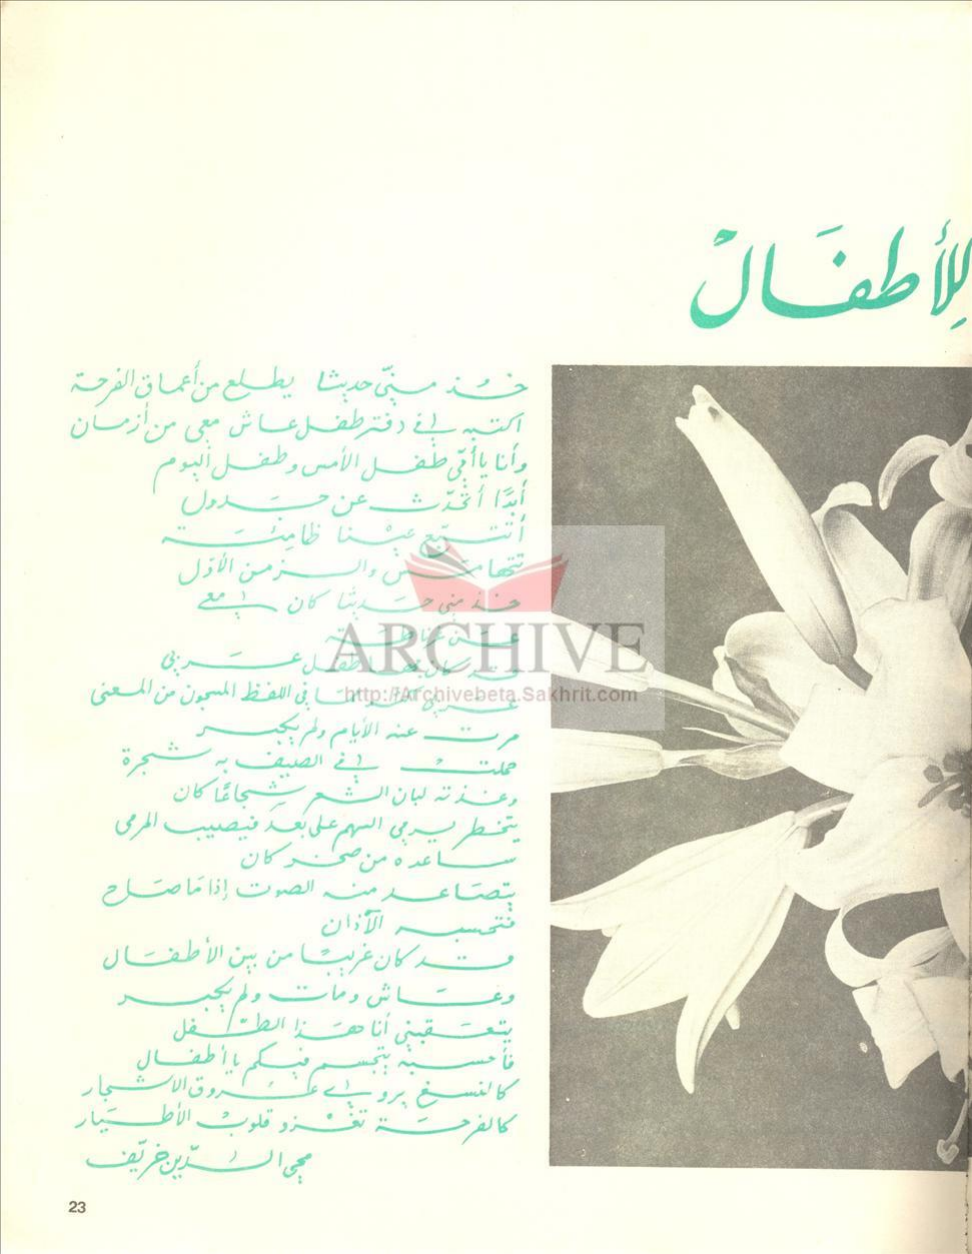 لِلأطفَالْ
خُذ منّي حديثا يطلع من أعماق الفرحة
اكتبه في دفتر طفل عاش معي من أزمان
وأنا يا أمّي طفل الأمس وطفل اليوم
أبدًا أتحدّث عن جَدول
ظامئة
والزمن الأوّل
خذ مني حديثا كان معي
عن
ARCHIVE
طفل عربي
http://Archivebeta.Sakhrit.com
في اللفظ المسجون من المعنى
مرت عنه الأيام ولم يكبر
حملتْ في الصيف به شجرة
وغذته لبان الشعر شجاعًا كان
يتخطر يرمي السهم على بعد فيصيب المرمى
ساعده من صخر كان
يتصاعد منه الصوت إذا مَا صَاح
فتحسبه الآذان
قد كان غريبًا من بين الأطفال
وعاش ومات ولم يكبر
يتعقبني أنا هذا الطفل
فأحسبه يتجسم فيكم يا أطفال
كالنسغ يروي عروق الاشجار
كالفرحة تغزو قلوب الأطيار
محي الدّين خريّف
23